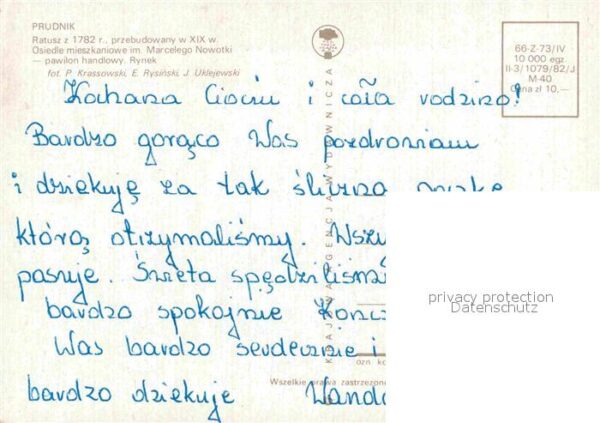 PRUDNIK
Ratusz z 1782 r., przebudowany w XIX w.
Osiedle mieszkaniowe im. Marcelego Nowotki
— pawilon handlowy. Rynek
fot. P. Krassowski, E. Rysiński, J. Uklejewski
66-Z-73/IV
10 000 egz.
II-3/1079/82/J
M-40
Cena zł 10,—
Kochana Ciociu i cała rodzino!
Bardzo gorąco Was pozdrawiam
i dziękuję za tak śliczną
którą otrzymaliśmy.
pasuje. Święta spędziliśmy
bardzo spokojnie
Was bardzo serdecznie i
bardzo dziękuje Wanda
KRAJOWA AGENCJA WYDAWNICZA
Wszelkie prawa zastrzeżone
privacy protection
Datenschutz